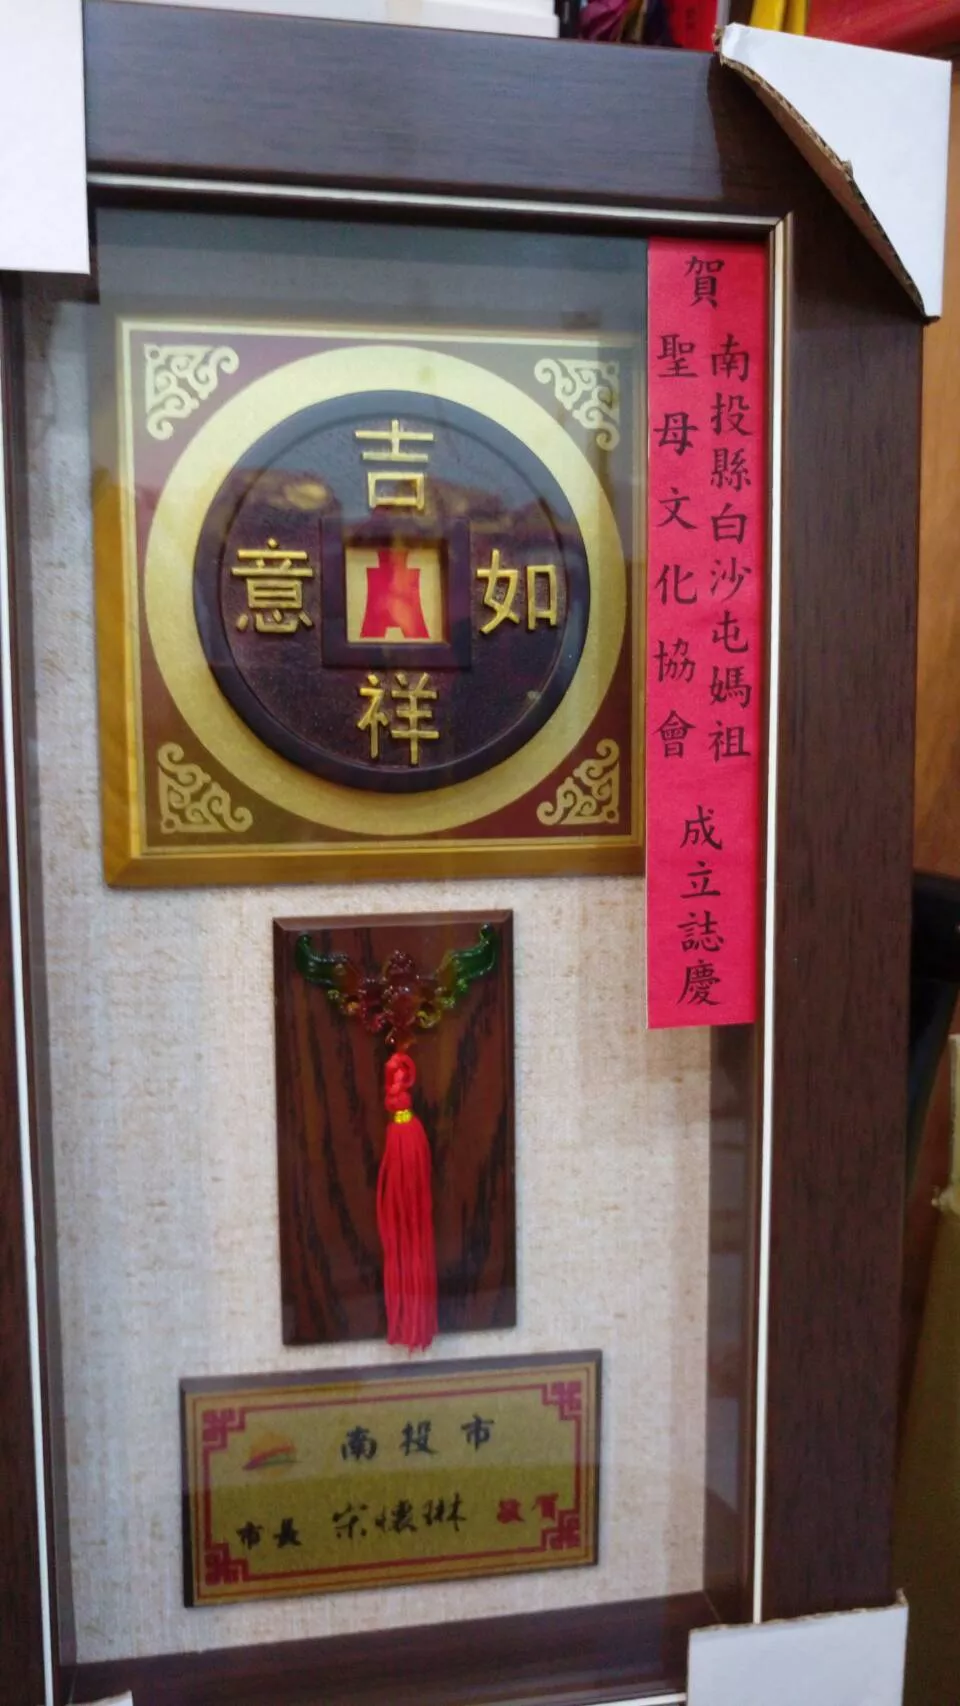 賀
南投縣白沙屯媽祖
聖母文化協會
成立誌慶
吉
祥
如
意
南投市
市長 宋懷琳 敬賀